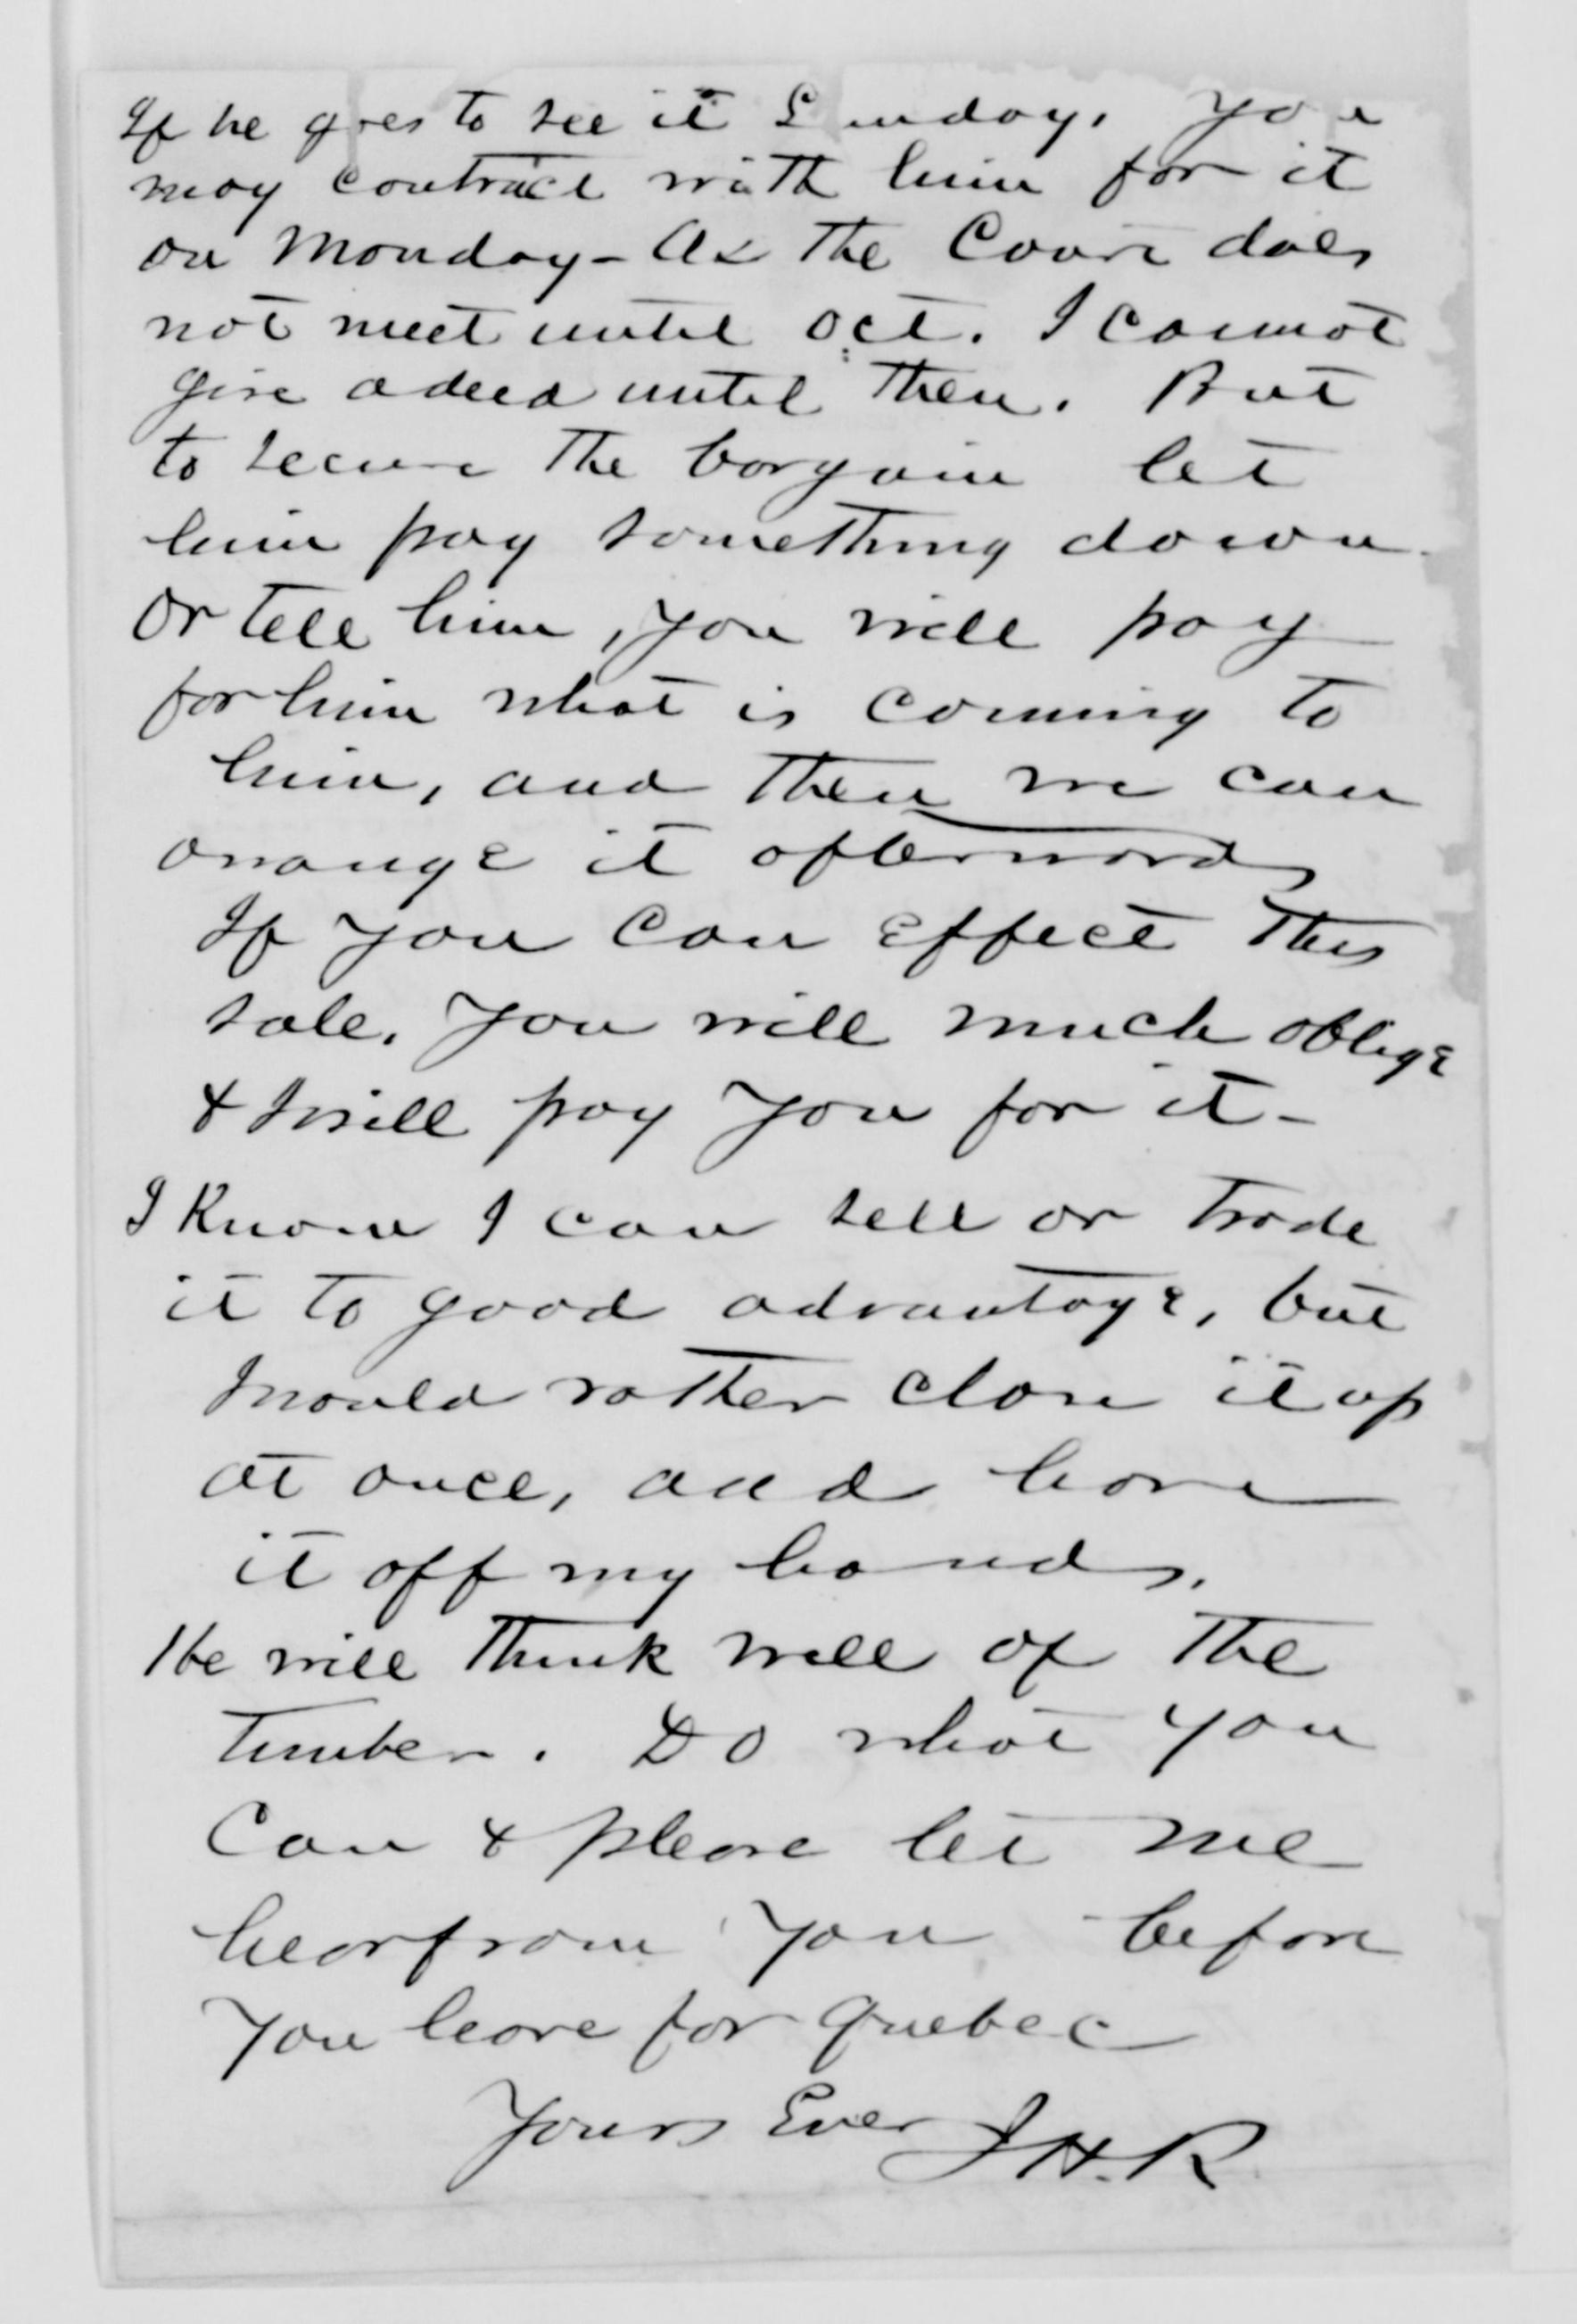 If he goes to see it Sunday, you
may contract with him for it
on Monday - As the Court does
not meet until Oct. I cannot
give a deed until then. But
to secure the bargain let
him pay something down
or tell him, you will pay
for him what is coming to
him, and then we can
arrange it afterwards
If you can effect this
sale, you will much oblige
& I will pay you for it -
I know I can sell or trade
it to good advantage, but
I would rather close it up
at once, and have
it off my hands.
He will think well of the
timber. Do what you
can & please let me
hear from you before
you leave for Quebec
Yours Ever J.H.R.